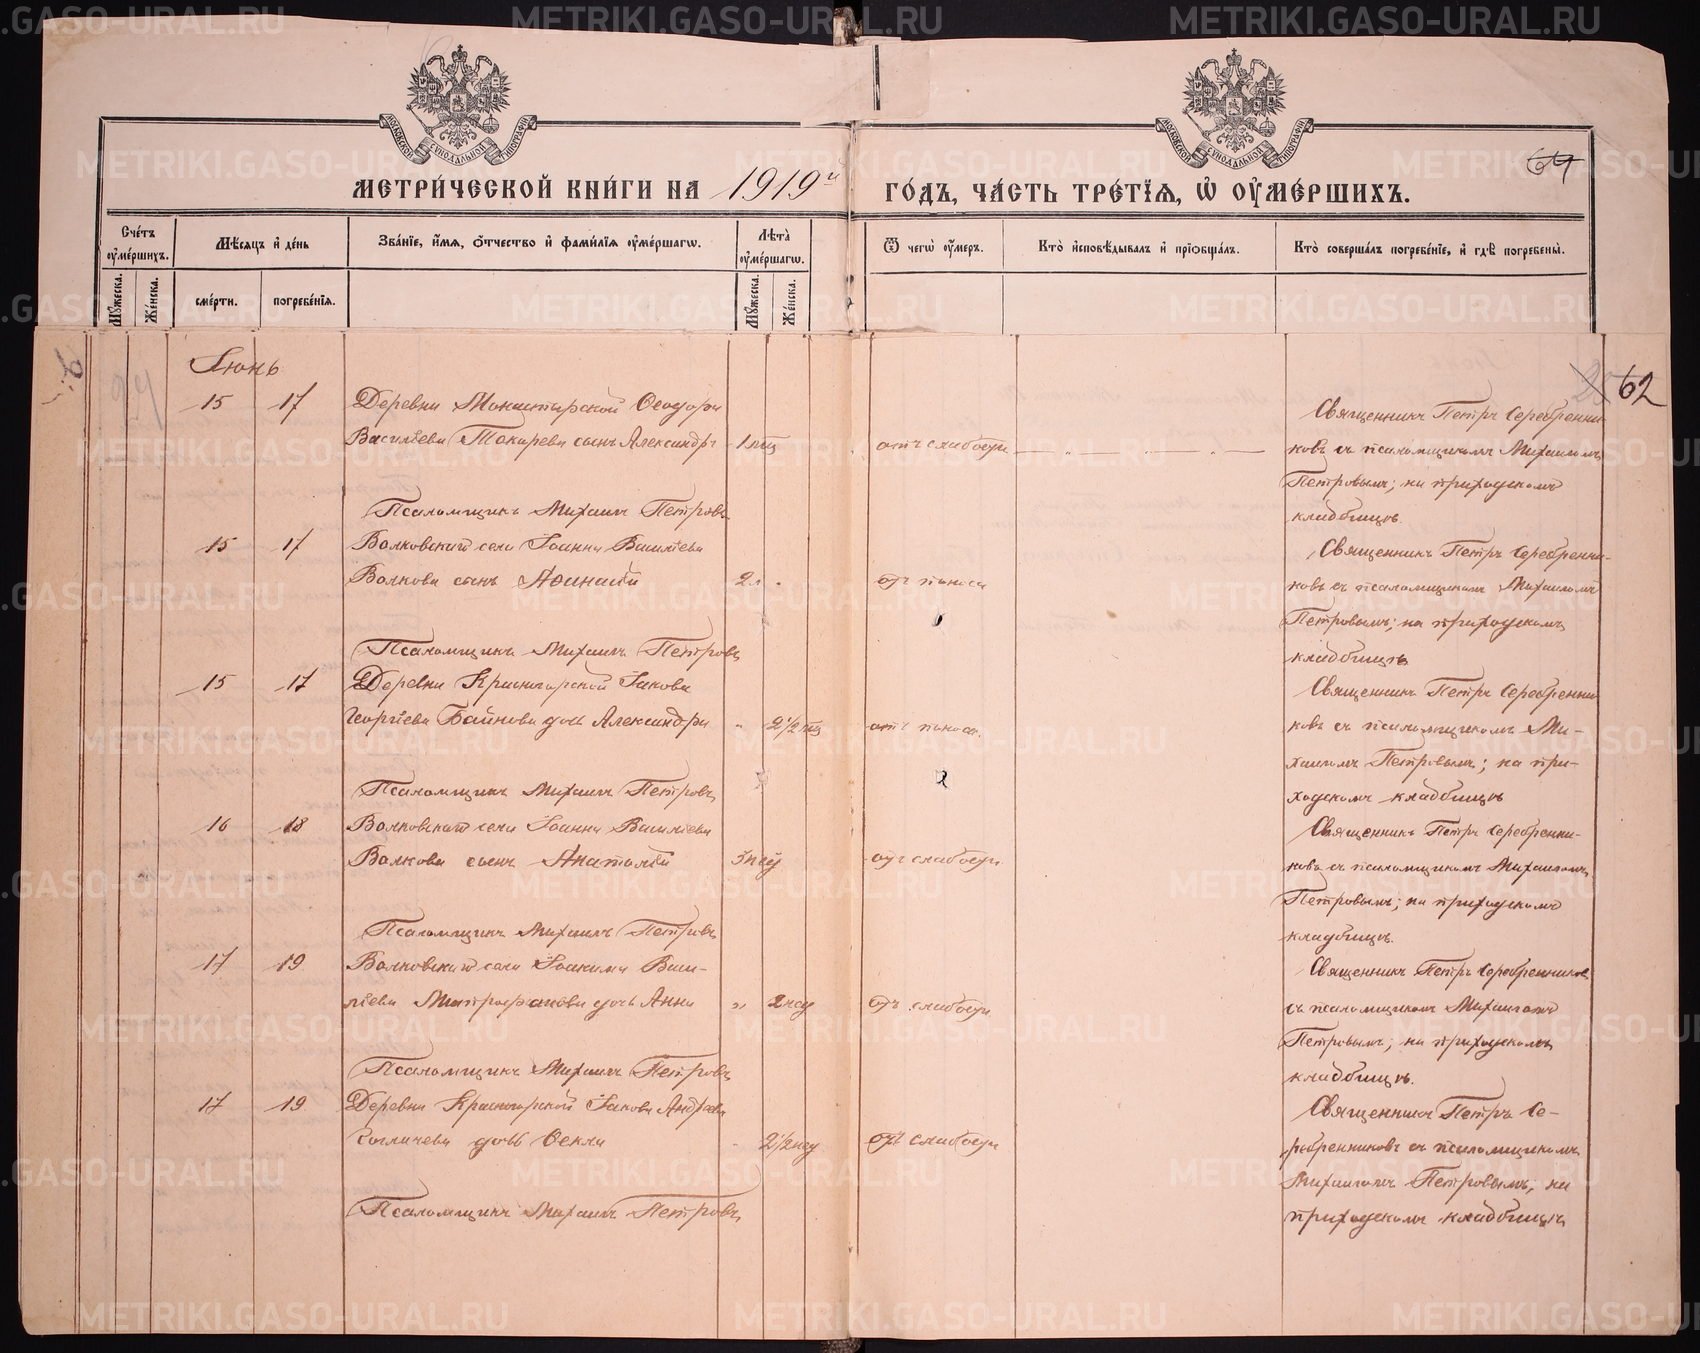 МЕТРИ́ЧЕСКОЙ КНИ́ГИ НА 1919й ГО́ДЪ, ЧА́СТЬ ТРЕ́ТІѦ, Ѽ ОУ҆МЕ́РШИХЪ.
64
Сче́тъ оу҆ме́ршихъ.
Мѣ́сяцъ и҆ де́нь
Зва́нїе, и҆́мя, ѻ҆́тчество и҆ фами́лїя оу҆ме́ршагѡ.
Лѣ̑та̀ оу҆ме́ршагѡ.
Ѿ чегѡ̀ оу҆́меръ.
Кто̀ и҆сповѣ́дывалъ и҆ прїѡбща́лъ.
Кто̀ соверша́лъ погребе́нїе, и҆ гдѣ̀ погребены̀.
Мꙋ́жеска.
Же́нска.
сме́рти.
погребе́нїя.
Мꙋ́жеска.
Же́нска.
62
Іюнь
15 17 Деревни Монастырской Ѳеодора
Васильева Токарева сынъ Александръ 1 мѣс отъ слабости
Священникъ Петръ Серебренни-
ковъ съ псаломщикомъ Михаиломъ
Петровымъ; на приходскомъ
кладбищѣ.
Псаломщикъ Михаилъ Петровъ
15 17 Волковскаго села Іоанна Васильева
Волкова сынъ Аѳанасій 2 л. отъ поноса
Священникъ Петръ Серебренни-
ковъ съ псаломщикомъ Михаиломъ
Петровымъ; на приходскомъ
кладбищѣ
Псаломщикъ Михаилъ Петровъ
15 17 Деревни Красногорской Іакова
Георгіева Байнова дочь Александра 2½ мѣс отъ поноса.
Священникъ Петръ Серебренни
ковъ съ псаломщикомъ Ми-
хаиломъ Петровымъ; на при-
ходскомъ кладбищѣ
Псаломщикъ Михаилъ Петровъ
16 18 Волковскаго села Іоанна Васильева
Волкова сынъ Анатолій 3 нед отъ слабости
Священникъ Петръ Серебренни-
ковъ съ псаломщикомъ Михаиломъ
Петровымъ; на приходскомъ
кладбищѣ.
Псаломщикъ Михаилъ Петровъ
17 19 Волковскаго села Іоакима Васи-
льева Митрофанова дочь Анна 2 нед отъ слабости
Священникъ Петръ Серебренниковъ
съ псаломщикомъ Михаиломъ
Петровымъ; на приходскомъ
кладбищѣ.
Псаломщикъ Михаилъ Петровъ
17 19 Деревни Красногорской Іакова Андреева
дочь Ѳекла 2½ нед отъ слабости
Священникъ Петръ Се-
ребренниковъ съ псаломщикомъ
Михаиломъ Петровымъ; на
приходскомъ кладбищѣ
Псаломщикъ Михаилъ Петровъ
METRIKI.GASO-URAL.RU